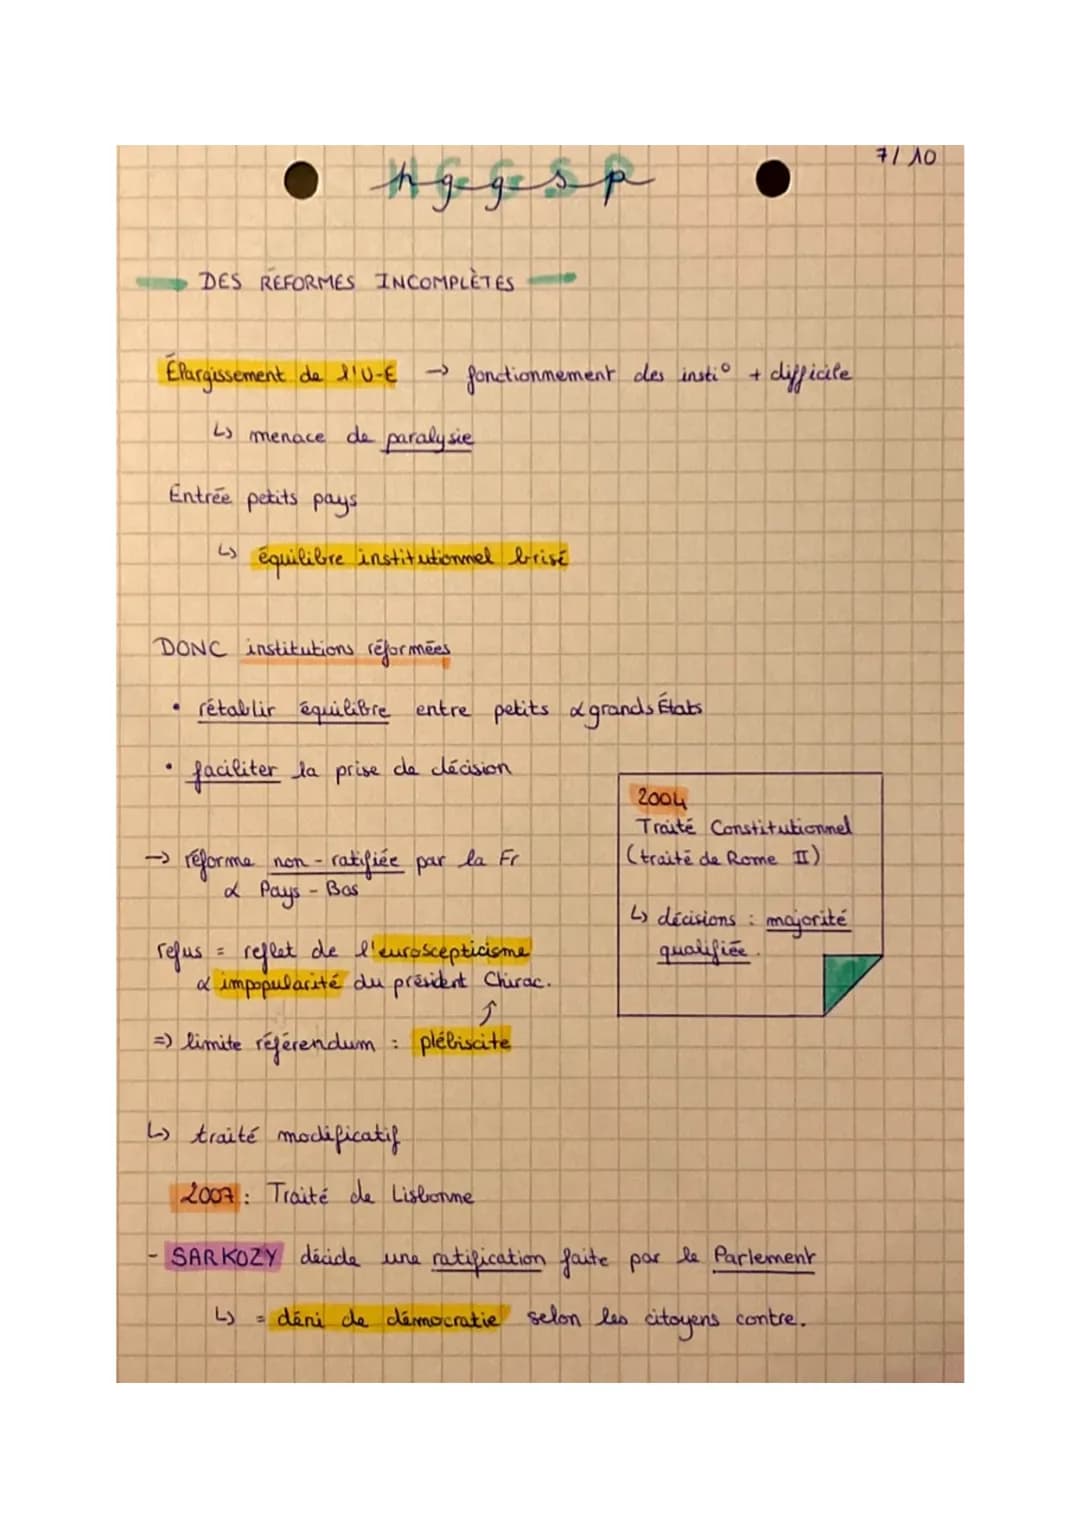 7/10
hggsp
DES RÉFORMES INCOMPLÈTES
Élargissement de l'U-E → fonctionnement des insti° + difficile
↳ menace de paralysie
Entrée petits pays
↳ équilibre institutionnel brisé
DONC institutions réformées
• rétablir équilibre entre petits & grands États
• faciliter la prise de décision
→ réforme non-ratifiée par la Fr
& Pays-Bas
refus = reflet de l'euroscepticisme
& impopularité du président Chirac.
=> limite référendum : plébiscite
2004
Traité Constitutionnel
(traité de Rome II)
↳ décisions : majorité
qualifiée.
↳ traité modificatif
2007 : Traité de Lisbonne
- SARKOZY décide une ratification faite par le Parlement
↳ = déni de démocratie selon les citoyens contre.